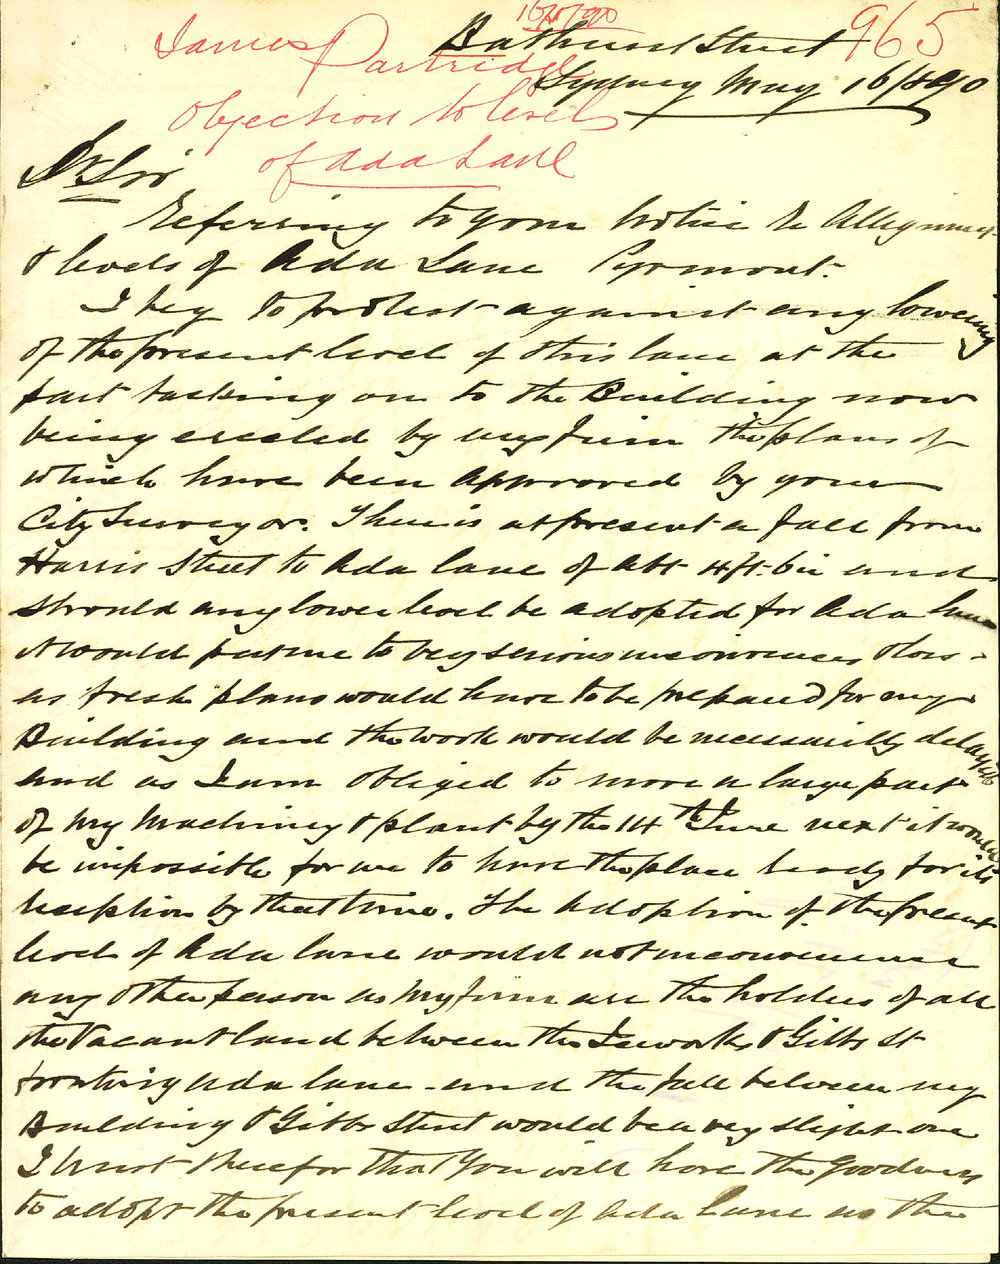 16/5/90
965
James Partridge
Objection to levels
of Ada Lane
Bathurst Street
Sydney May 16/1890
Dr Sir
Referring to your Notice re Allignment
& levels of Ada Lane Pyrmont.
I beg to protest against any lowering
of the present level of this lane at the
part backing on to the Building now
being erected by my firm the plans of
which have been approved by your
City Surveyor. There is at present a fall from
Harris Street to Ada lane of abt 4ft. 6in and
should any lower level be adopted for Ada lane
it would put me to very serious inconvenience & loss -
as fresh plans would have to be prepared for my
Building and the work would be necessarily delayed
and as I am obliged to move a large part
of my Machinery & plant by the 14th June next it would
be impossible for me to have the place ready for its
reception by that time. The adoption of the present
level of Ada lane would not inconvenience
any other person as my firm are the holders of all
the Vacant land between the Iceworks & Gibbs St
fronting Ada lane - and the fall between my
Building & Gibbs Street would be a very slight one
I trust therefor that You will have the goodness
to adopt the present level of Ada Lane as the